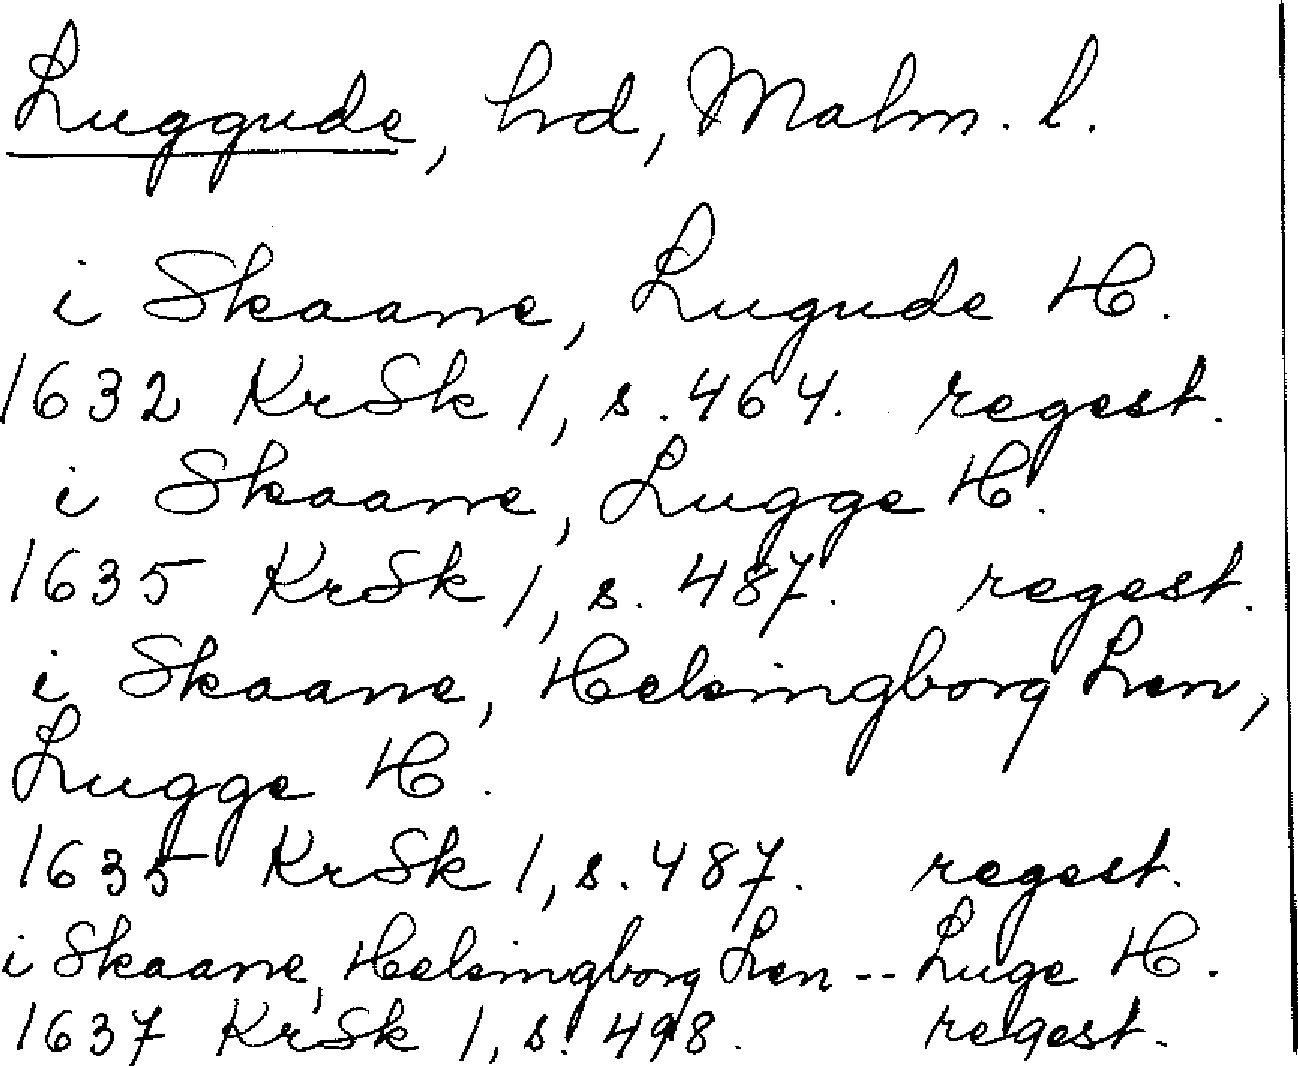 Luggude, hrd, Malm. l.
i Skaane, Lugude H.
1632 KrSk 1, s. 464. regest.
i Skaane, Lugge H.
1635 KrSk 1, s. 487. regest.
i Skaane, Helsingborg Len,
Lugge H.
1635 KrSk 1, s. 487. regest.
i Skaane, Helsingborg Len -- Luge H.
1637 KrSk 1, s. 498. regest.